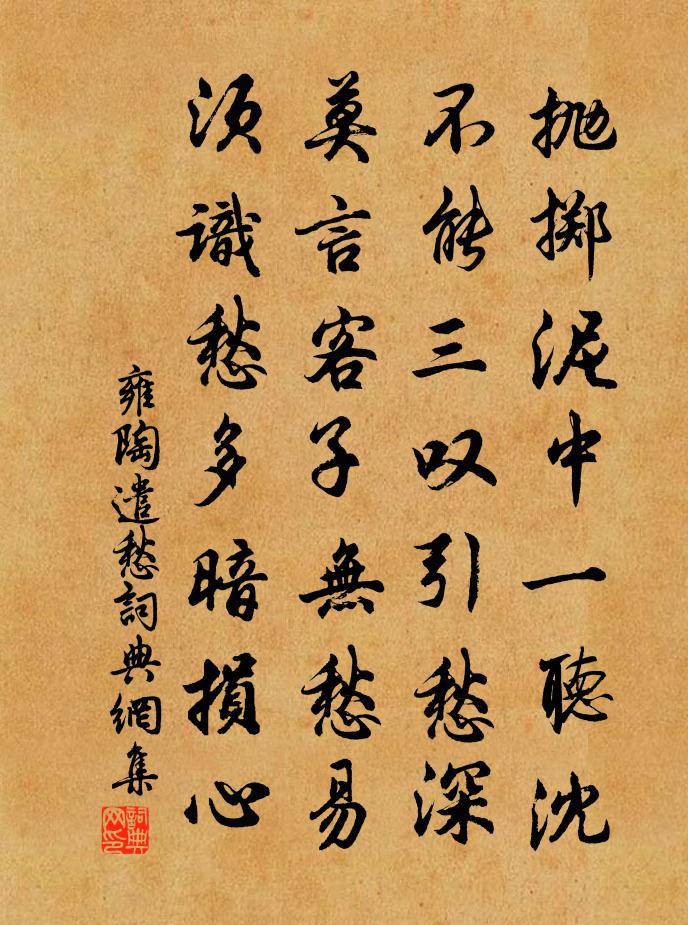 抛掷泥中一聽沈
不能三叹引愁深
莫言客子無愁易
须識愁多暗損心
雍陶遣愁詞典網集
詞典网印